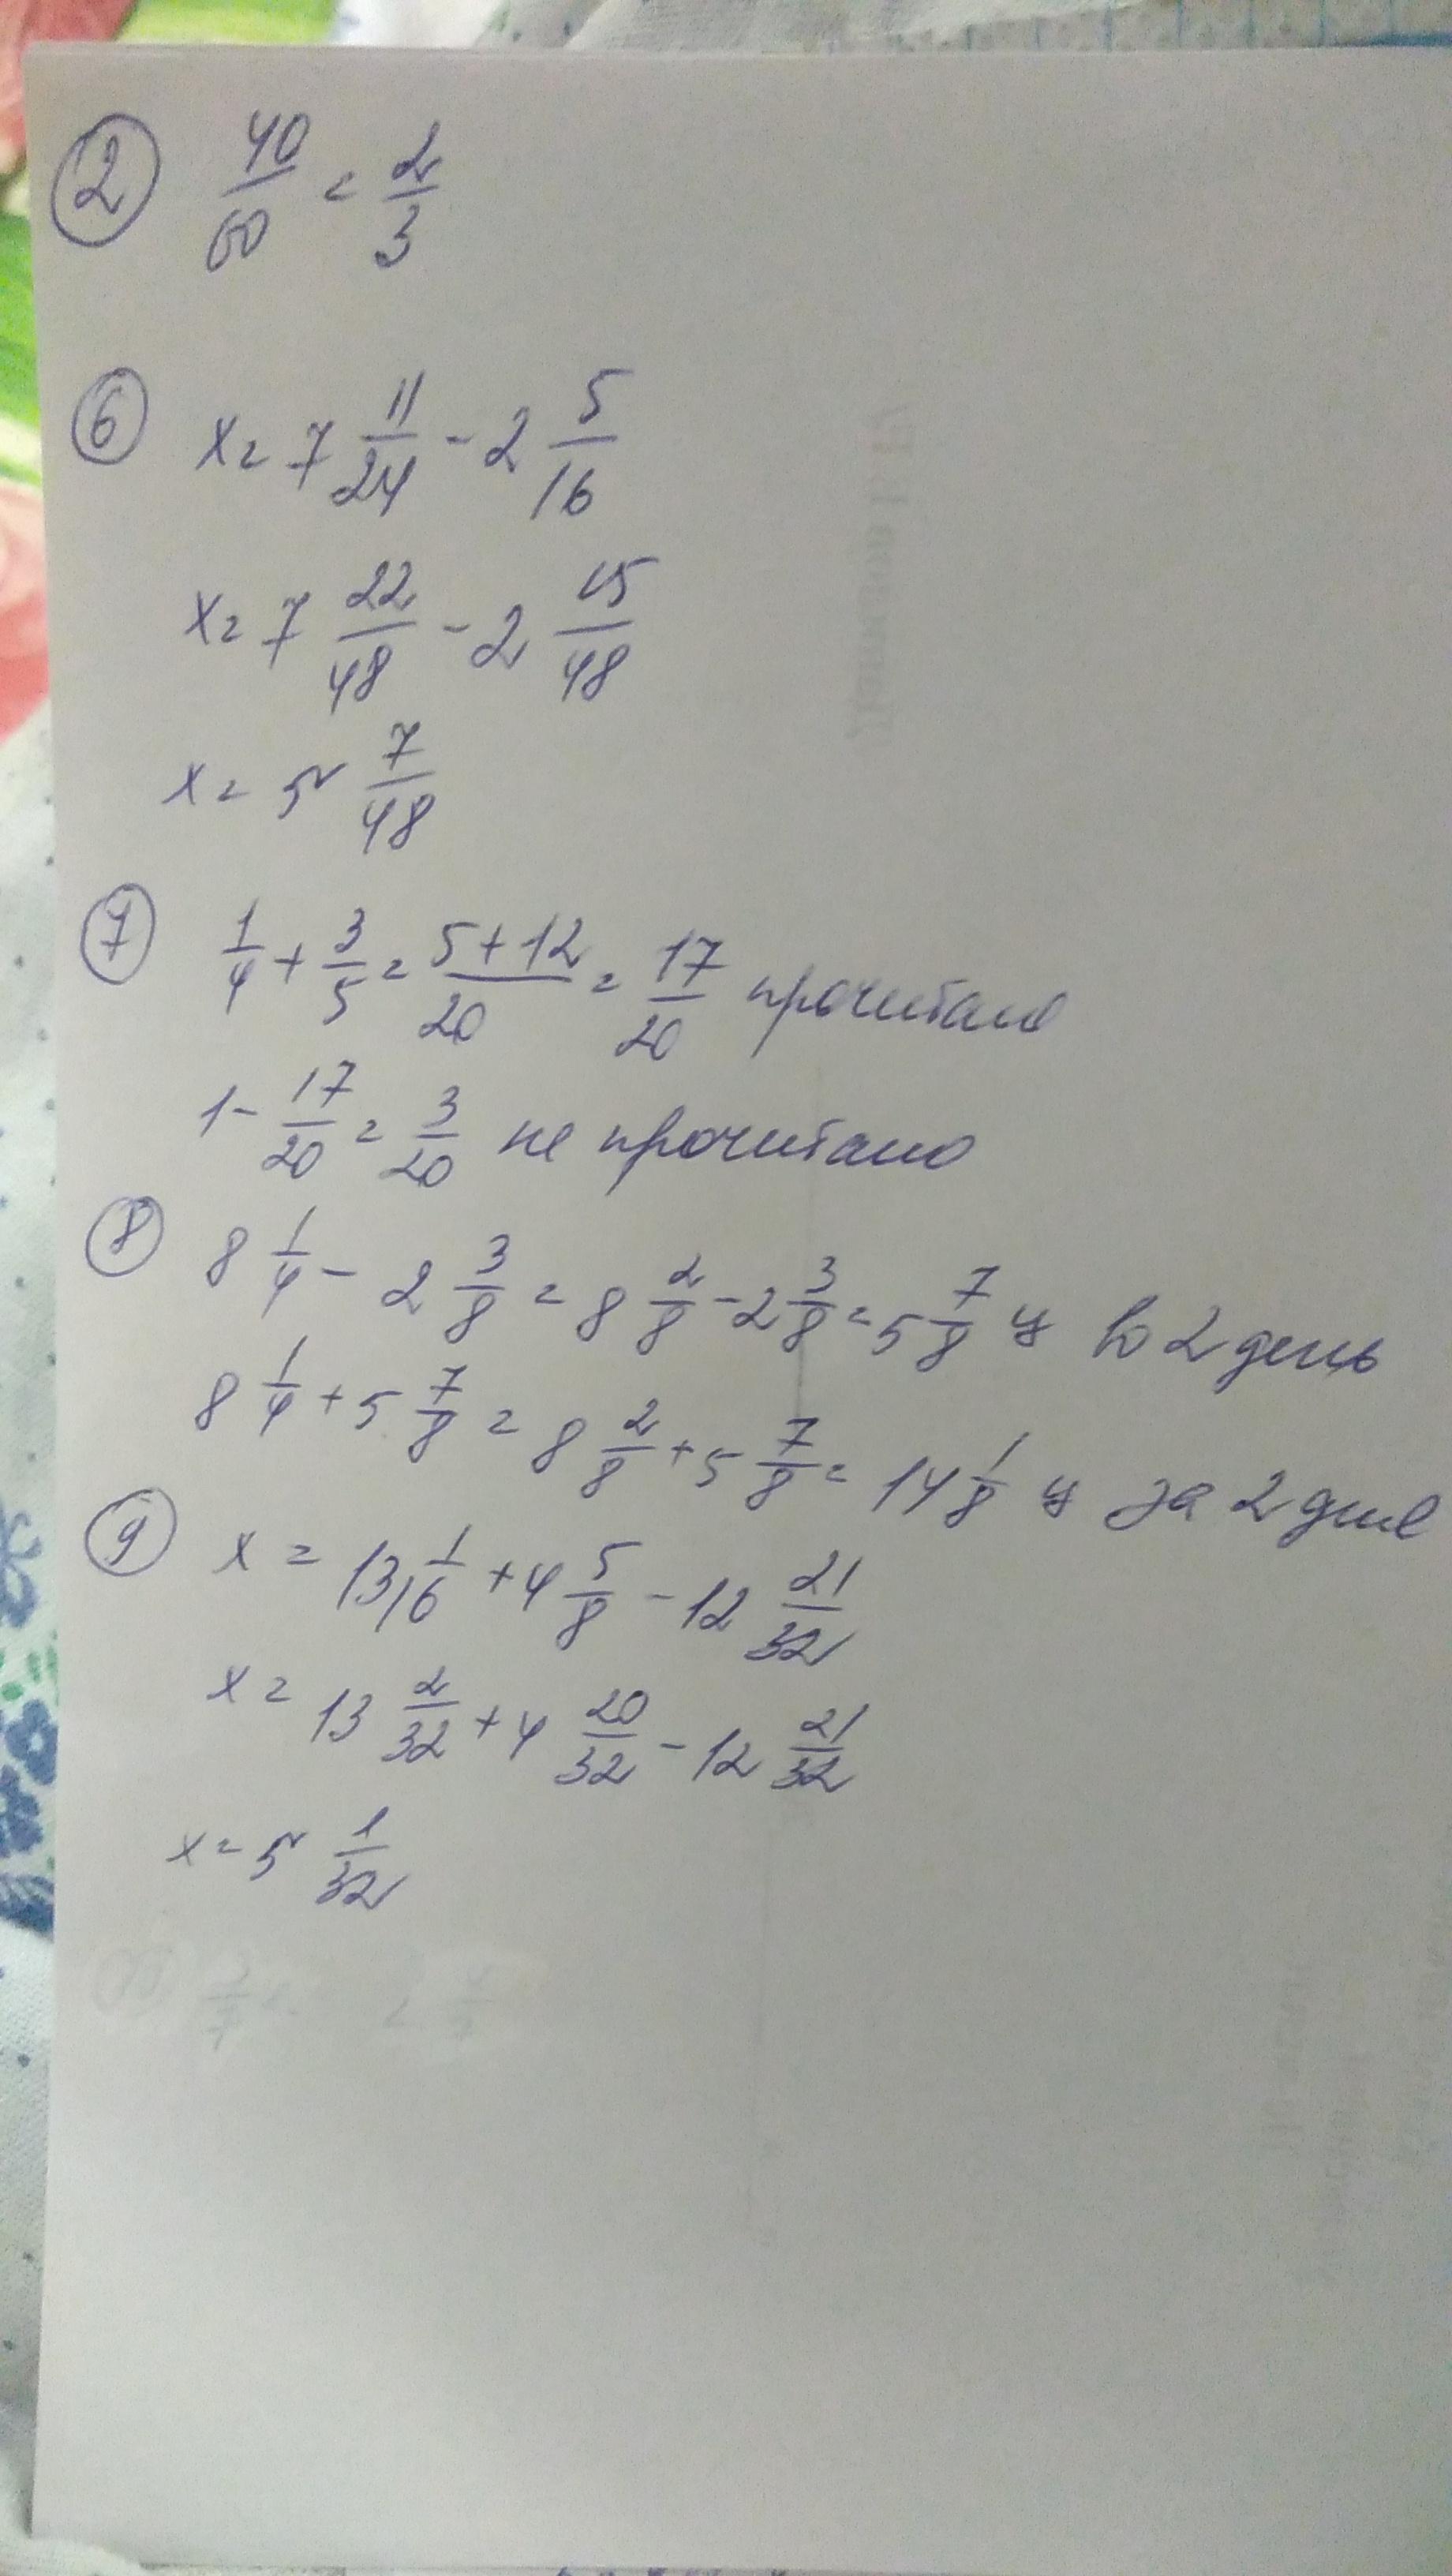 ② 40/60 = 2/3
⑥ x = 7 11/24 - 2 5/16
x = 7 22/48 - 2 15/48
x = 5 7/48
⑦ 1/4 + 3/5 = (5+12)/20 = 17/20 прочитано
1 - 17/20 = 3/20 не прочитано
⑧ 8 1/4 - 2 3/8 = 8 2/8 - 2 3/8 = 5 7/8 ц во 2 день
8 1/4 + 5 7/8 = 8 2/8 + 5 7/8 = 14 1/8 ц за 2 дня
⑨ x = 13 1/16 + 4 5/8 - 12 21/32
x = 13 2/32 + 4 20/32 - 12 21/32
x = 5 1/32